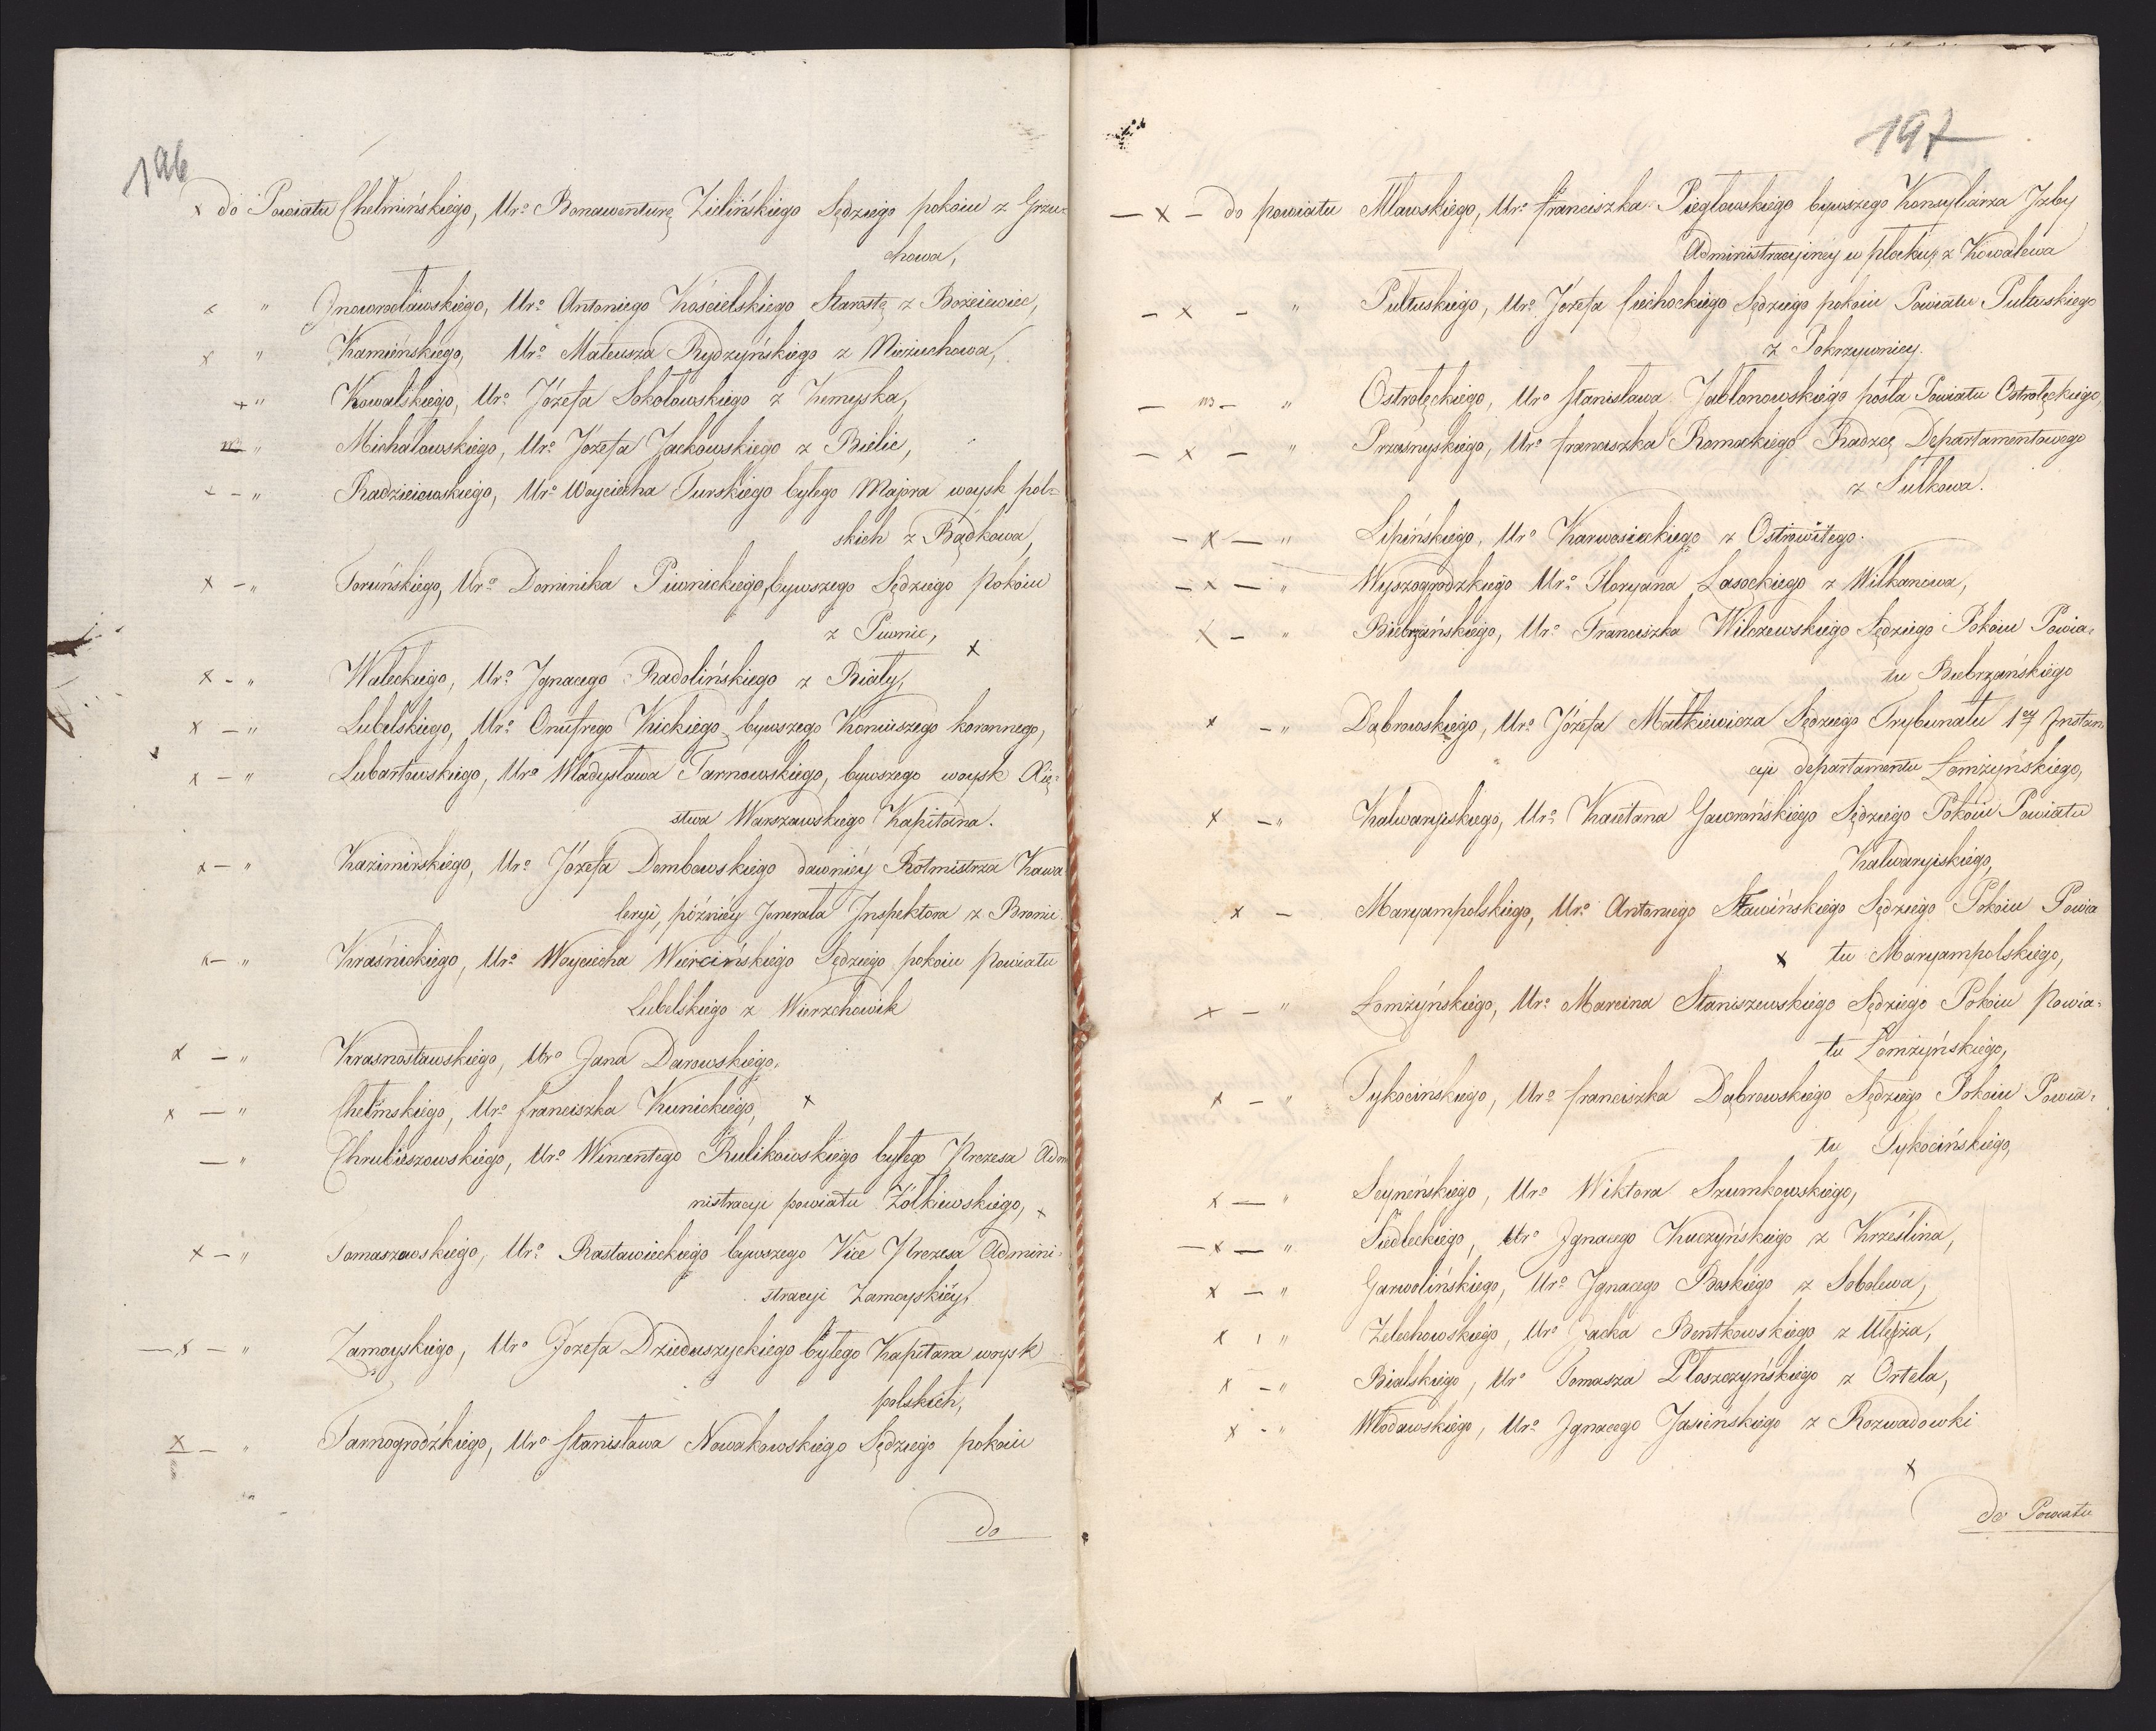 196
x do Powiatu Chełmińskiego, Uro Bonawenturę Zielińskiego Sędziego pokoiu z Grzu=
chowa,
x " Jnowrocławskiego, Uro Antoniego Kościelskiego Starostę z Bożeiewic,
x " Kamieńskiego, Uro Mateusza Rydzyńskiego z Nieżuchowa,
x " Kowalskiego, Uro Józefa Sokołowskiego z
" Michałowskiego, Uro Józefa Jackowskiego z Bielic,
x - " Radzieiowskiego, Uro Woyciecha Turskiego byłego Majora woysk pol=
skich z Bądkowa,
x - " Toruńskiego, Uro Dominika Piwnickiego, bywszego Sędziego pokoiu
z Piwnic,
x
x - " Wałeckiego, Uro Jgnacego Radolińskiego z Biały,
x - " Lubelskiego, Uro Onufrego Kickiego bywszego Koniuszego koronnego,
x - " Lubartowskiego, Uro Władysława Tarnowskiego, bywszego woysk Xię=
stwa Warszawskiego Kapitana.
x - " Kazimirskiego, Uro Józefa Dembowskiego dawniéy Rotmistrza Kawa
leryi, późniéy Jenerała Jnspektora z Bronic
x - " Kraśnickiego, Uro Woyciecha Wiercińskiego Sędziego pokoiu powiatu
Lubelskiego z Wierzchowisk
x - " Krasnostawskiego, Uro Jana Darowskiego.
x - " Chełmskiego, Uro franciszka Kunickiego, x
- " Chrubieszowskiego, Uro Wincentego Rulikowskiego byłego Prezesa Adm
nistracyi powiatu Żółkiewskiego, x
x - " Tomaszowskiego, Uro Rastawieckiego bywszego Vice Prezesa Admini=
stracyi Zamoyskiéy,
- x - " Zamoyskiego, Uro Jozefa Dzieduszyckiego byłego Kapitana woysk
polskich,
x - " Tarnogrodzkiego, Uro Stanisława Nowakowskiego Sędziego pokoiu
do
197
- x - do powiatu Mławskiego, Uro franciszka Piegłowskiego bywszego Konsyliarza Jzby
Administracyiney w płocku, z Kowalewa
- x - " Pułtuskiego, Uro Jozefa Ciechockiego Sędziego pokoiu Powiatu Pułtuskiego
z Pokrzywnicy.
- - " Ostrołęckiego, Uro Stanisława Jabłonowskiego posła Powiatu Ostrołęckiego,
- x - " Przasnyskiego, Uro franciszka Romockiego Radzcę Departamentowego
z Sułkowa.
- x - " Lipińskiego, Uro Karwosieckiego z Ostrowitego.
- x - " Wyszogrodzkiego Uro Floryana Lasockiego z Wilkanowa,
x - " Biebrzańskiego, Uro Franciszka Wilczewskiego Sędziego Pokoiu Powia=
tu Biebrzańskiego
x - " Dąbrowskiego, Uro Józefa Małkiewicza Sędziego Trybunału 1ey Jnstan
cyi departamentu Łomżyńskiego,
x - " Kalwaryiskiego, Uro Kaietana Gawrońskiego Sędziego Pokoiu Powiatu
Kalwaryiskiego,
x - Maryampolskiego, Uro Antoniego Sławińskiego Sędziego Pokoiu Powia
x tu Maryampolskiego,
x - " Łomżyńskiego, Uro Marcina Staniszewskiego Sędziego Pokoiu powia=
tu Łomżyńskiego,
x - " Tykocinskiego, Uro franciszka Dąbrowskiego Sędziego Pokoiu Powia=
tu Tykocińskiego,
x - " Seyneńskiego, Uro Wiktora Szumkowskiego,
- x - " Siedleckiego, Uro Jgnacego Kuczyńskiego z Krześlina,
x - " Garwolińskiego, Uro Jgnacego Boskiego z Sobolewa,
x - " Żelechowskiego, Uro Jacka Bentkowskiego z Ulęża,
x - " Bialskiego, Uro Tomasza Płoszczyńskiego z Ortela,
x - " Włodawskiego, Uro Jgnacego Jasieńskiego z Rozwadowki
x
do Powiatu